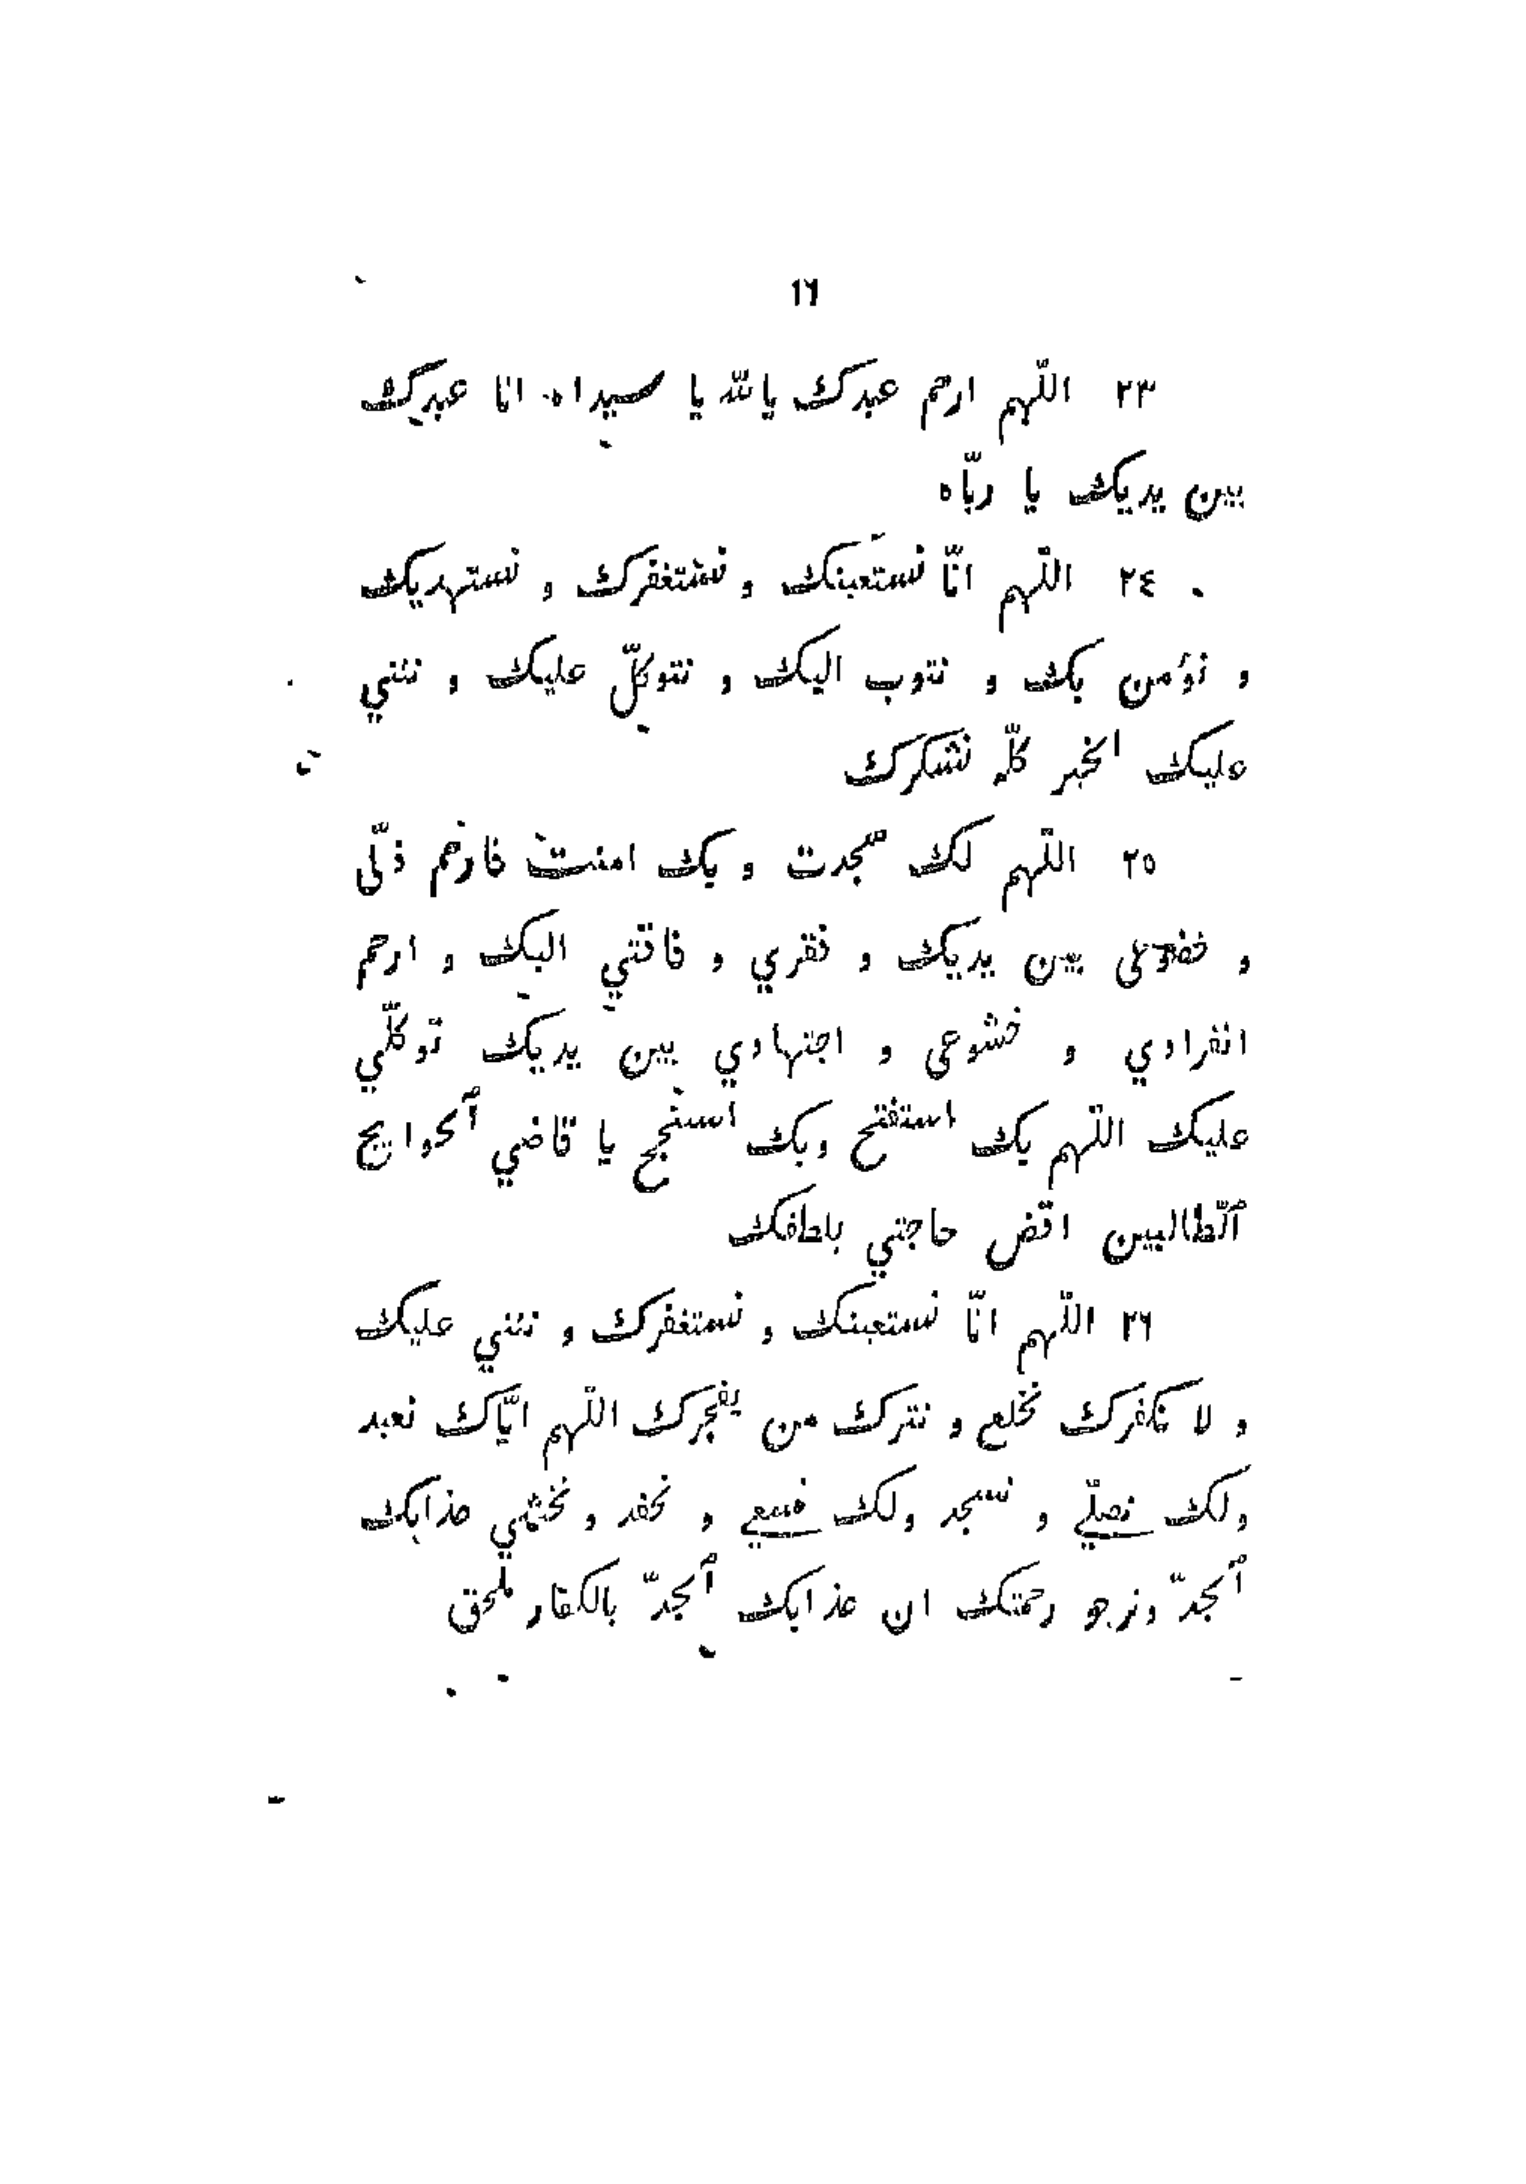 ١٦
٢٣ اللّهم ارحم عبدك يا الله يا سيداه انا عبدك
بين يديك يا ربّاه
٢٤ اللّهم انّا نستعينك و نستغفرك و نستهديك
و نؤمن بك و نتوب اليك و نتوكلّ عليك و نثني
عليك الخير كلّه نشكرك
٢٥ اللّهم لك سجدت و بك امنت فارحم ذلّى
و خضوعى بين يديك و فقري و فاقتي اليك و ارحم
انفرادي و خشوعى و اجتهادي بين يديك توكلّي
عليك اللّهم بك استفتح وبك استنجح يا قاضي ٱلحوايج
ٱلطّالبين اقض حاجتي بلطفك
٢٦ اللّهم انّا نستعينك و نستغفرك و نثني عليك
و لا نكفرك نخلع و نترك من يفجرك اللّهم ايّاك نعبد
ولك نصلّي و نسجد ولك نسعي و نحفد و نخشي عذابك
ٱلجدّ ونرجو رحمتك ان عذابك ٱلجدّ بالكفار ملحق